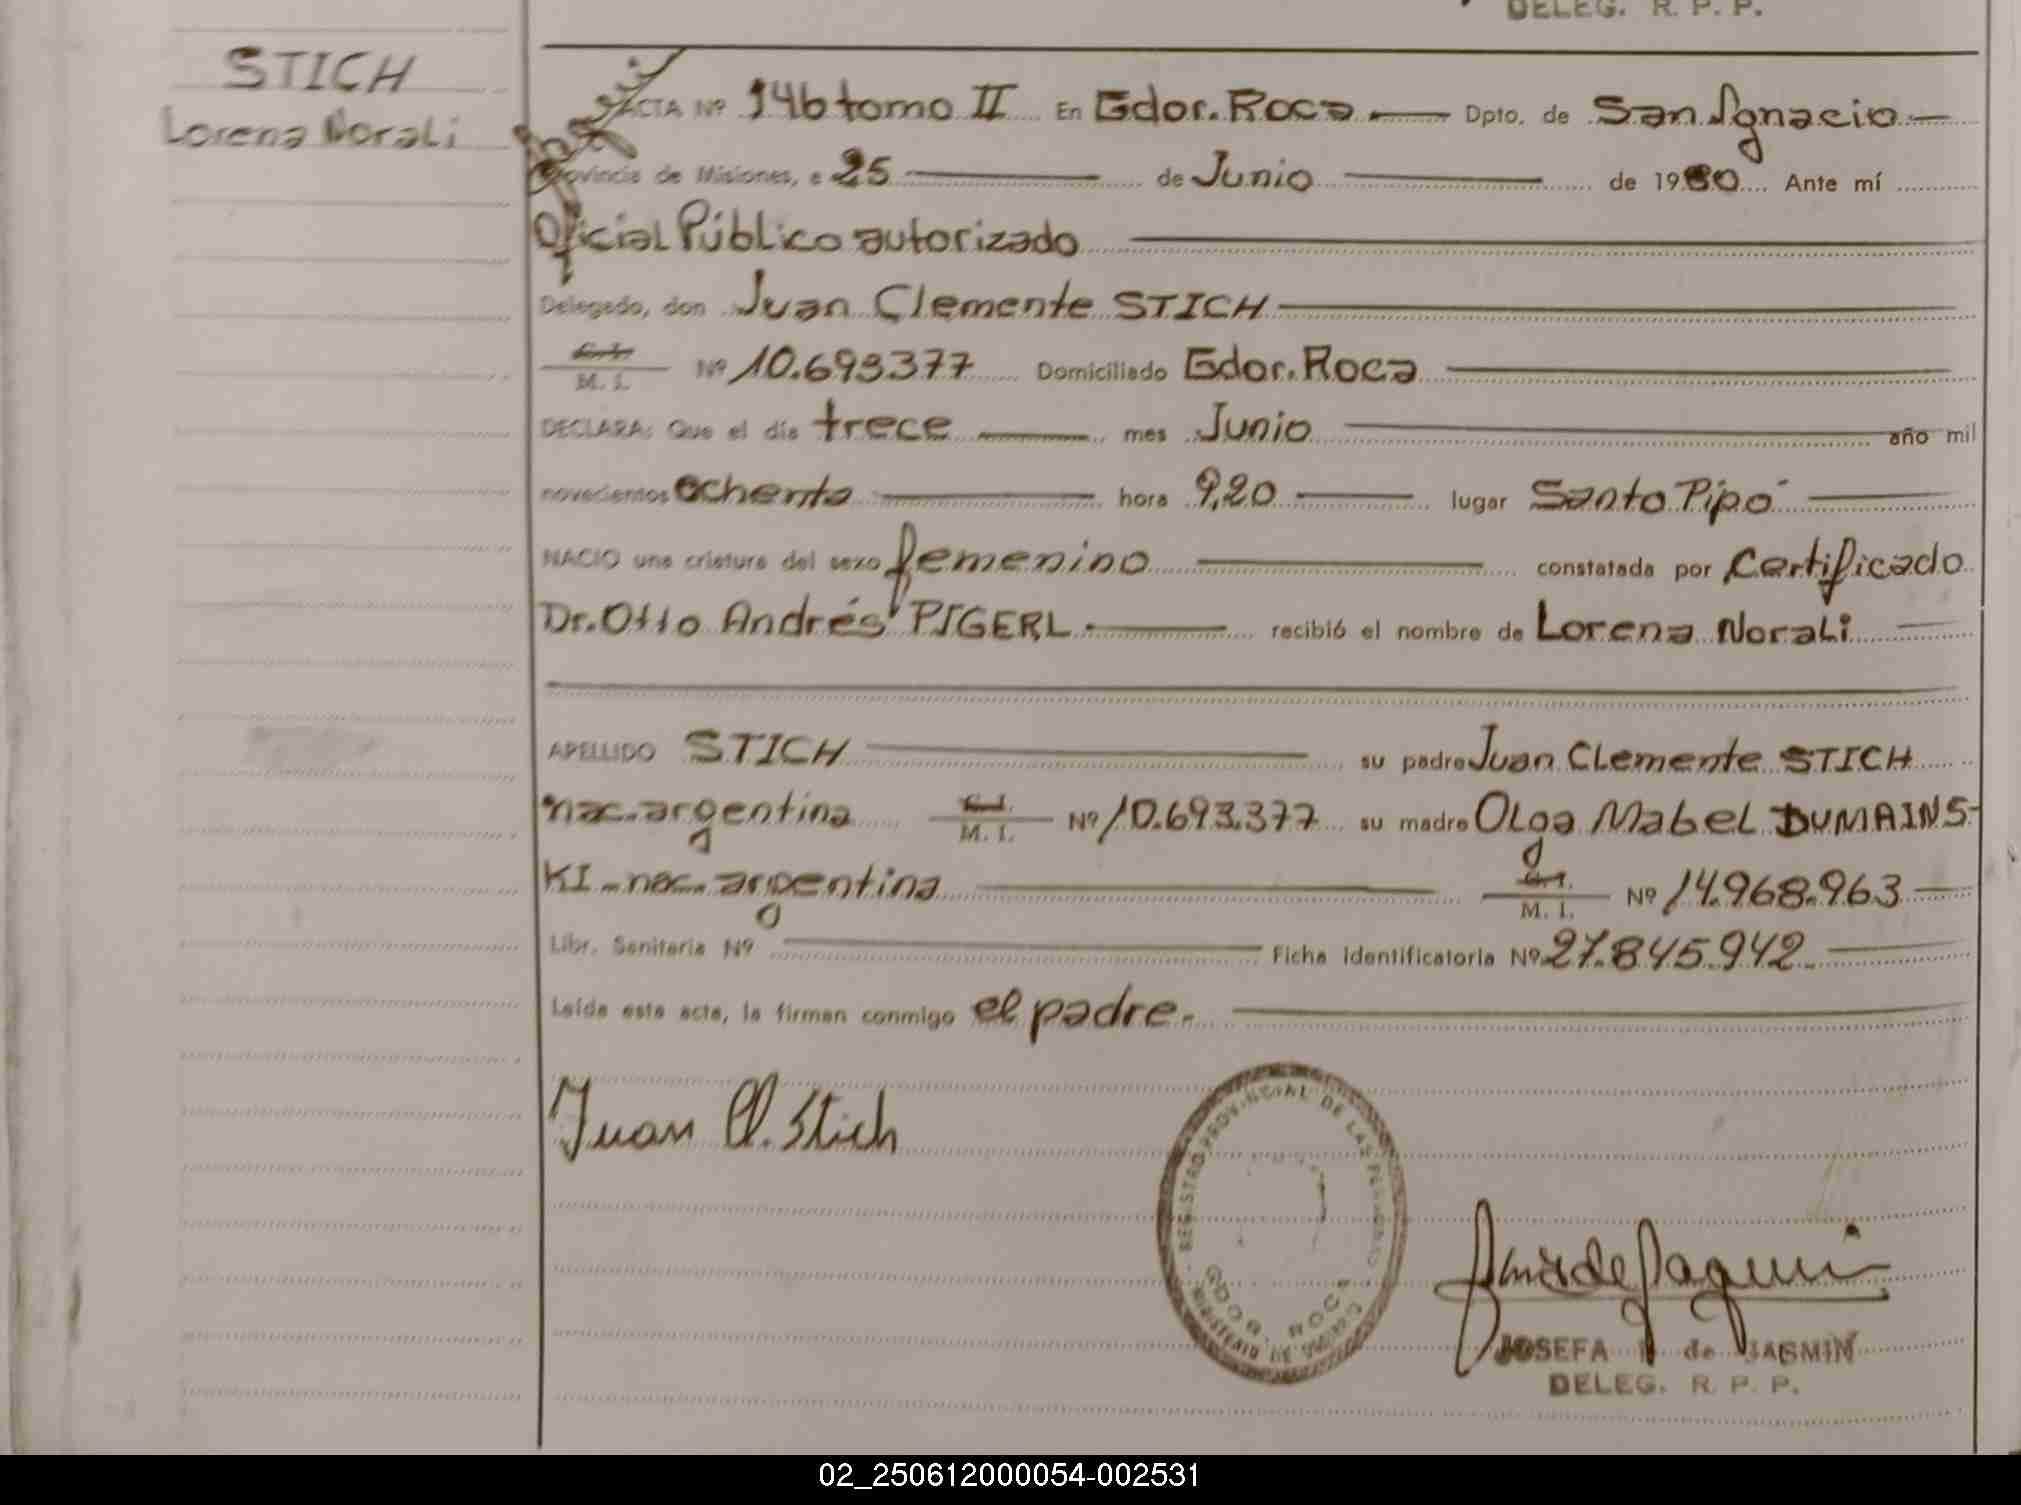 DELEG. R. P. P.
STICH
Lorena Norali
ACTA Nº 146 tomo II En Gdor. Roca Dpto. de San Ignacio
Provincia de Misiones, a 25 de Junio de 1980 Ante mí
Oficial Público autorizado
Delegado, don Juan Clemente STICH
C.I. M. I. Nº 10.693.377 Domiciliado Gdor. Roca
DECLARA: Que el día trece mes Junio año mil
novecientos ochenta hora 9,20 lugar Santo Pipó
NACIO una criatura del sexo femenino constatada por Certificado
Dr. Otto Andrés PIGERL recibió el nombre de Lorena Norali
APELLIDO STICH su padre Juan Clemente STICH
nac. argentina C.I. M. I. Nº 10.693.377 su madre Olga Mabel DUMAINS-
KI - nac. argentina C.I. M. I. Nº 14.968.963
Libr. Sanitaria Nº Ficha identificatoria Nº 27.845.942
Leída esta acta, la firman conmigo el padre.
Juan Cl. Stich
REGISTRO PROVINCIAL DE LAS PERSONAS
GDOR. ROCA
MINISTERIO DE GOBIERNO
JOSEFA de JASMIN
DELEG. R. P. P.
02_250612000054-002531